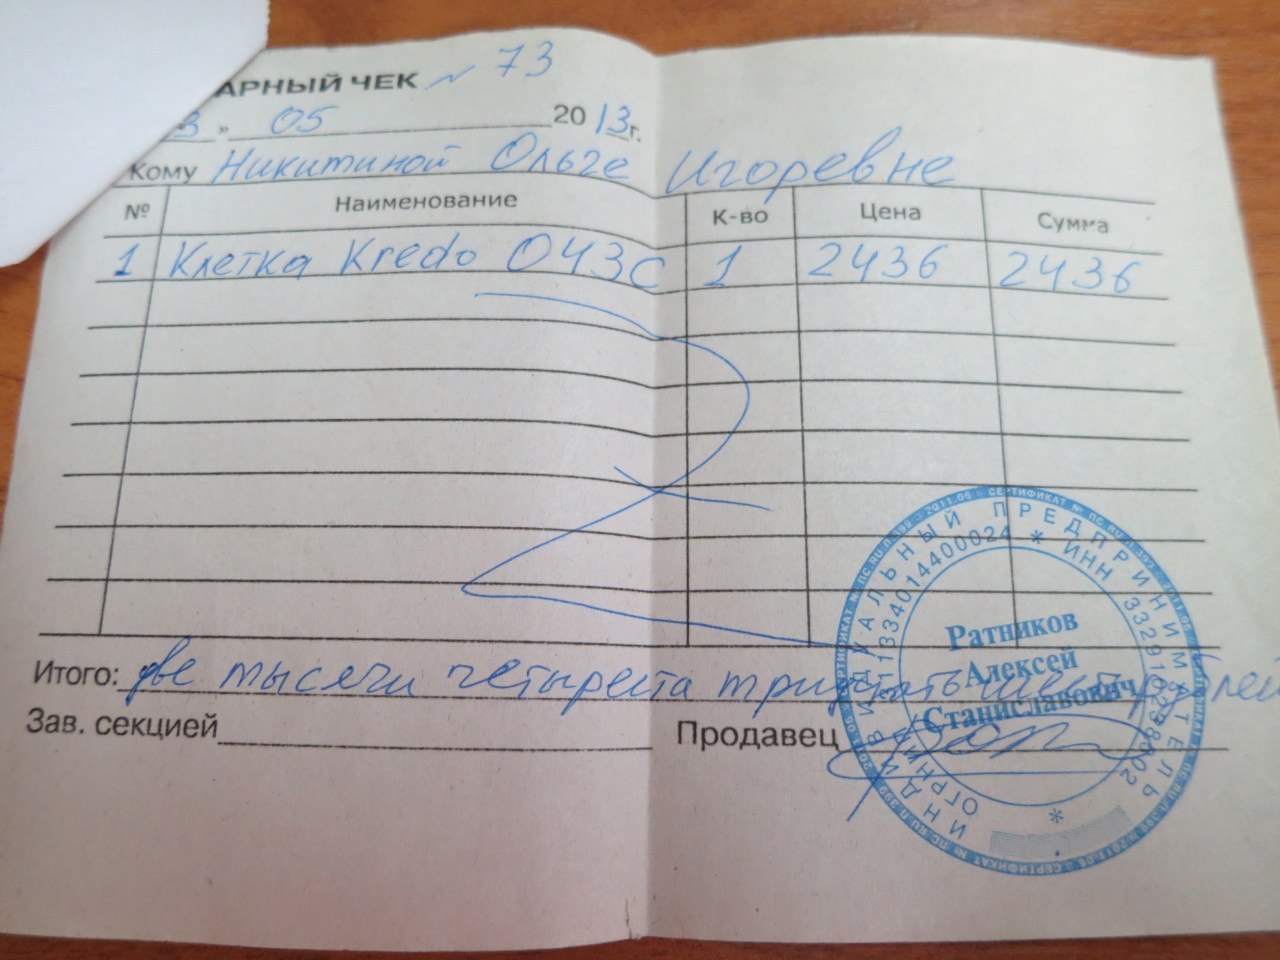 АРНЫЙ ЧЕК № 73
3 » 05 2013г.
Кому Никитиной Ольге Игоревне
№ Наименование К-во Цена Сумма
1 Клетка Kredo 043с 1 2436 2436
Итого: две тысячи четыреста тридцать шесть рублей
Зав. секцией Продавец
ИНДИВИДУАЛЬНЫЙ ПРЕДПРИНИМАТЕЛЬ
Ратников
Алексей
Станиславович